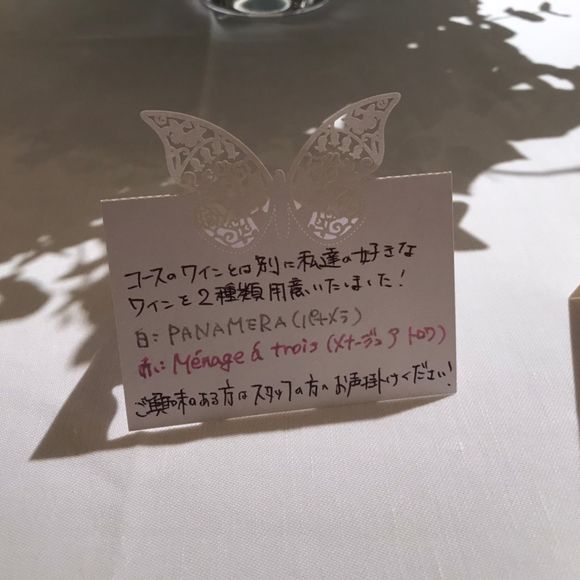 コースのワインとは別に私達の好きな
ワインを2種類用意いたしました!
白: PANAMERA(パナメラ)
赤: Ménage á trois (メナージュ ア トロワ)
ご興味のある方はスタッフの方へお声掛けください!